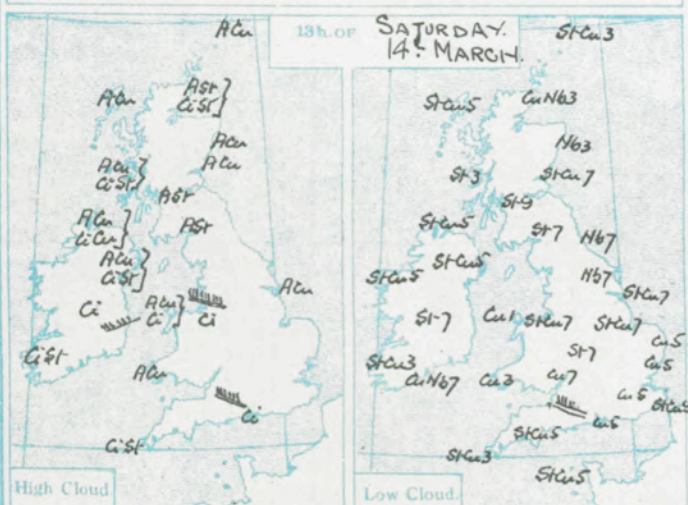 13h. OF SATURDAY.
14. MARCH.
ACu
ACu
ASt
CiSt
ACu
ACu
ACu
CiSt
ASt
ACu
CiCu
ASt
ACu
CiSt
Ci
ACu
Ci
Ci
ACu
CiSt
ACu
Ci
CiSt
High Cloud.
StCu3
StCu5
CuNb3
Nb3
St3
StCu7
St9
StCu5
St7
Nb7
StCu5
StCu5
Nb7
StCu7
St7
Cu1
StCu7
StCu7
Cu5
St7
Cu5
StCu3
CuNb7
Cu3
Cu7
Cu5
StCu5
StCu5
Cu5
StCu3
StCu5
Low Cloud.